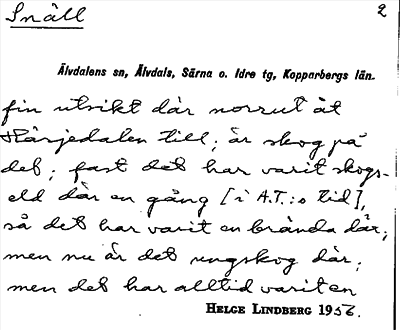 Snäll 2
Älvdalens sn, Älvdals, Särna o. Idre tg, Kopparbergs län.
fin utsikt där norrut åt
Härjedalen till; är skog på
det; fast det har varit skogs-
eld där en gång [i A.T.:s tid],
så det har varit en brända där;
men nu är det ungskog där;
men det har alltid varit en
HELGE LINDBERG 1956.